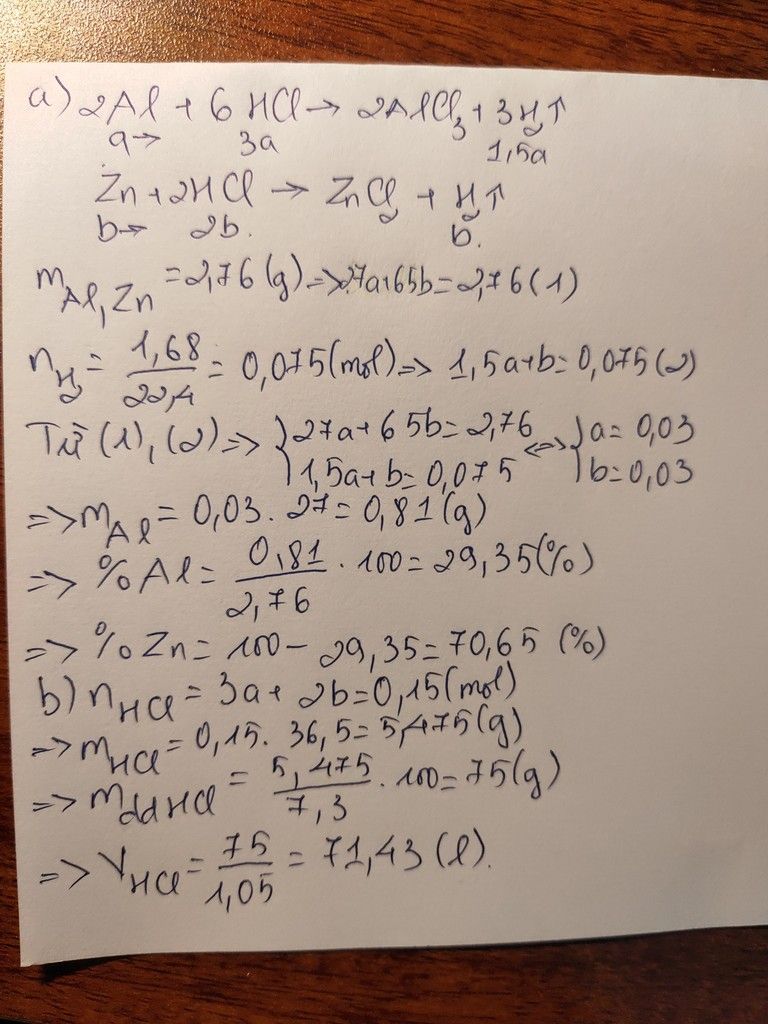 a) 2Al + 6 HCl → 2AlCl₃ + 3H₂↑
a→ 3a 1,5a
Zn + 2HCl → ZnCl₂ + H₂↑
b→ 2b. b.
m Al, Zn = 2,76 (g) => 27a+65b = 2,76 (1)
n H₂ = 1,68 / 22,4 = 0,075 (mol) => 1,5a+b = 0,075 (2)
Từ (1), (2) => { 27a + 65b = 2,76 <=> { a = 0,03
1,5a + b = 0,075 b = 0,03
=> m Al = 0,03. 27 = 0,81 (g)
=> % Al = 0,81 / 2,76 . 100 = 29,35 (%)
=> % Zn = 100 - 29,35 = 70,65 (%)
b) n HCl = 3a + 2b = 0,15 (mol)
=> m HCl = 0,15. 36,5 = 5,475 (g)
=> m dd HCl = 5,475 / 7,3 . 100 = 75 (g)
=> V HCl = 75 / 1,05 = 71,43 (l).